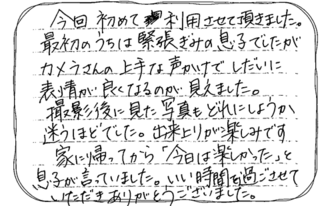 今回初めて利用させて頂きました。
最初のうちは緊張ぎみの息子でしたが
カメラさんの上手な声かけでしだいに
表情が良くなるのが見えました。
撮影後に見た写真もどれにしようか、
迷うほどでした。出来上りが楽しみです
家に帰ってから「今日は楽しかった」と
息子が言っていました。いい時間を過ごさせて
いただきありがとうございました。